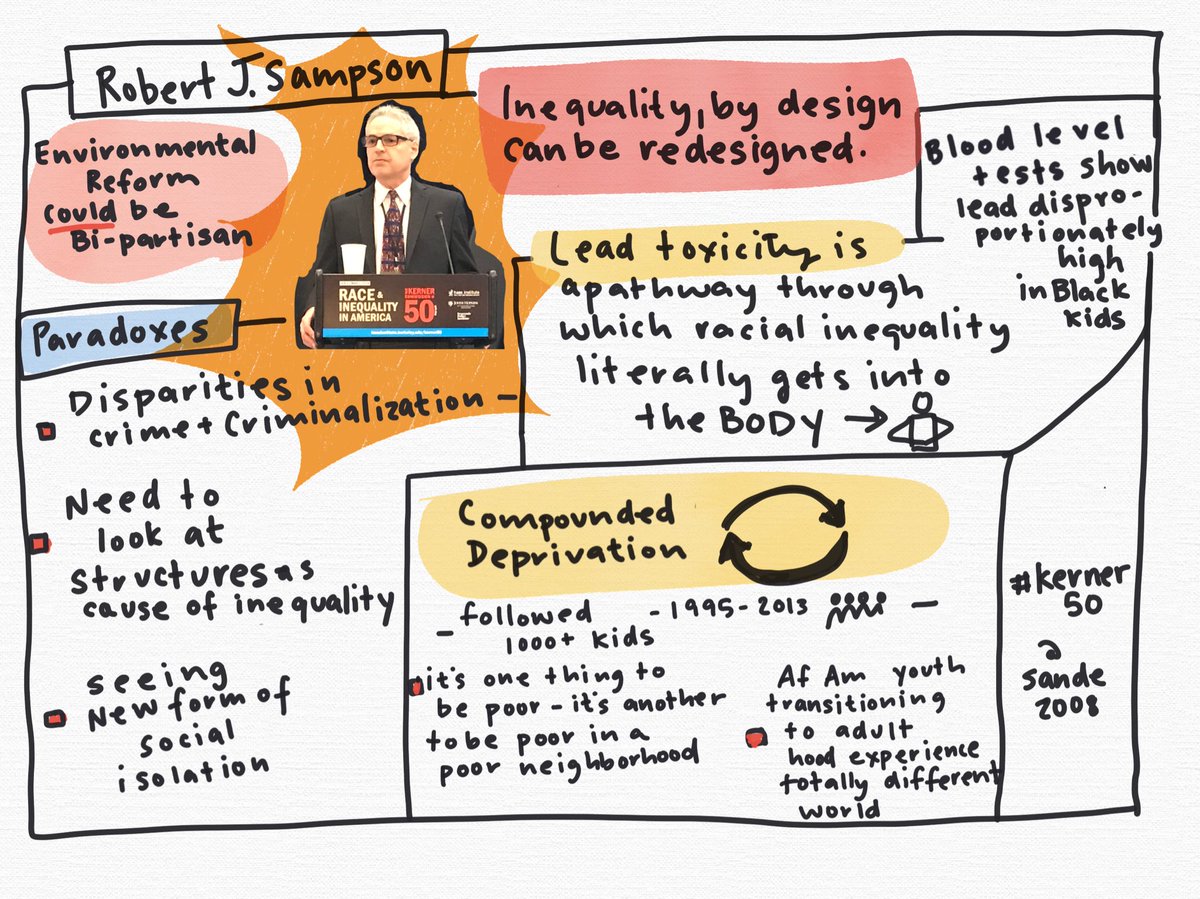 Robert J. Sampson
Environmental
Reform
could be
Bi-partisan
Inequality, by design
can be redesigned.
Blood level
tests show
lead dispro-
portionately
high
in Black
kids
Lead toxicity is
a pathway through
which racial inequality
literally gets into
the BODY →
RACE &
INEQUALITY
IN AMERICA
KERNER
COMMISSION @
50
Paradoxes
Disparities in
crime + Criminalization -
Need to
look at
structures as
cause of inequality
seeing
New form of
social
isolation
Compounded
Deprivation
- followed
1000+ kids
- 1995-2013 -
it's one thing to
be poor - it's another
to be poor in a
poor neighborhood
Af Am youth
transitioning
to adult
hood experience
totally different
world
#kerner
50
@
sande
2008